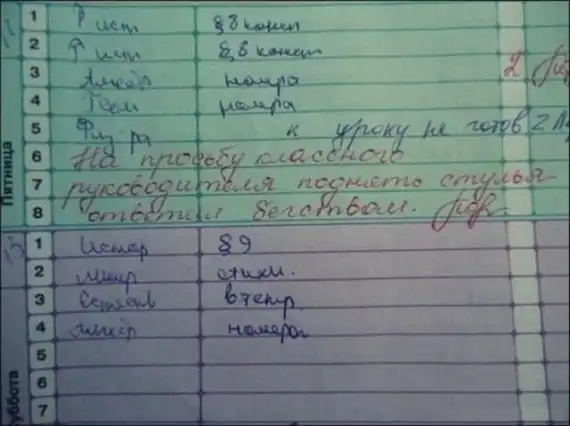 1 Р ист § 8 конец
2 Р ист § 8 конец
3 Алгебр номера 2
4 Геом номера
5 Физ ра к уроку не готов 2
6 На просьбу классного
7 руководителя поднять стулья
8 ответил бегством.
Пятница
1 Истор § 9
2 Литер стихи.
3 Естеств в тетр.
4 Алгебр номера
5
6
7
уббота